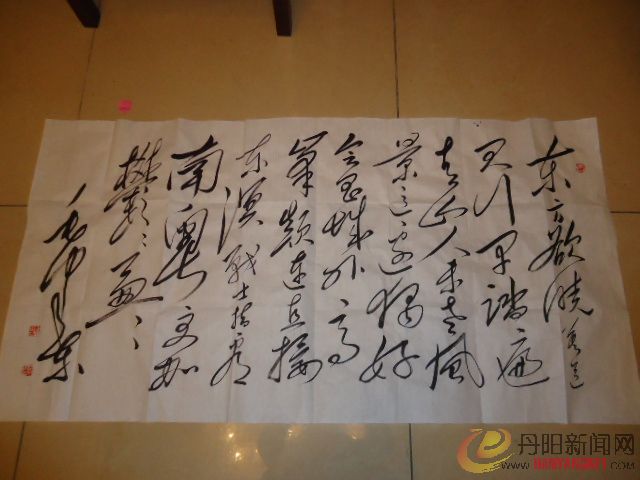 东方欲晓莫道
君行早踏遍
青山人未老风
景这边独好
会昌城外高
峯颠连直接
东溟战士指看
南粤更加
郁々葱々
毛泽东
丹阳新闻网